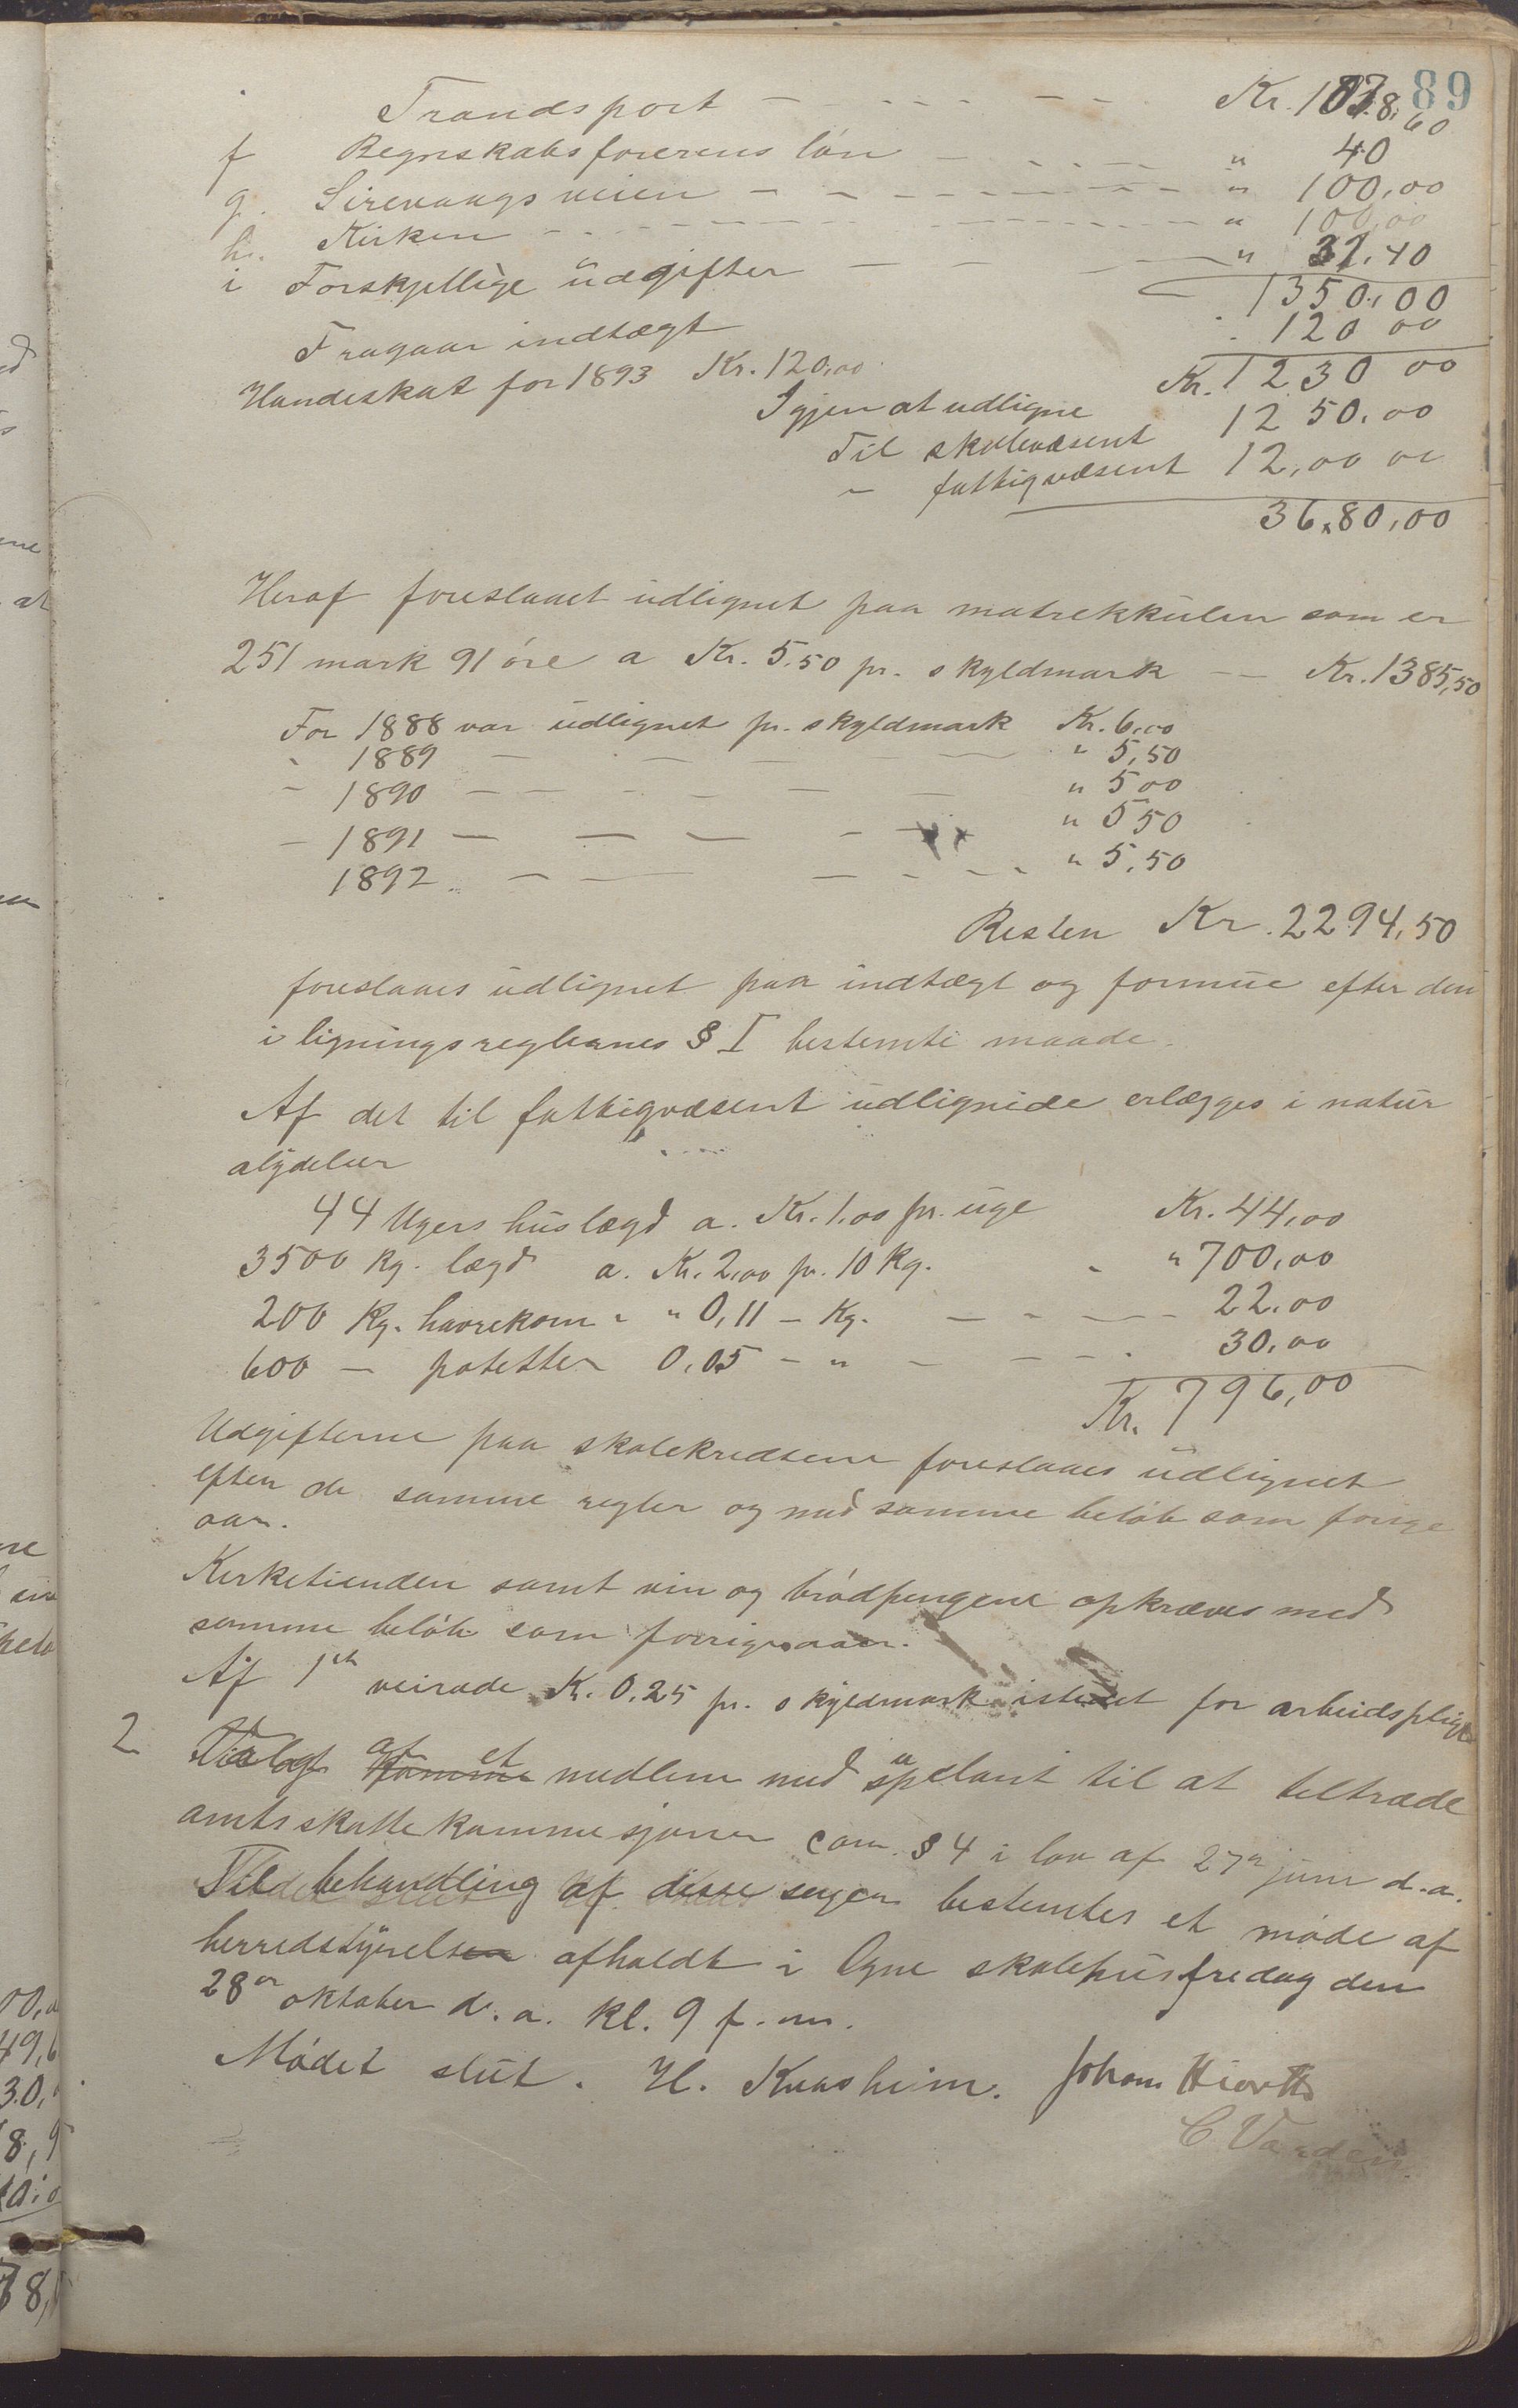 89
Transport - - - - - - Kr. 1078,60
f Regnskabsförerens lön - - - - " 40
g. Sirevaags veien - - - - - - " 100,00
h. Kirken - - - - - - - " 100,00
i Forskjellige üdgifter - - - - " 31,40
1350,00
Fragaar indtægt 120 00
Hundeskat for 1893 Kr. 120,00
Kr. 1230 00
Igjen at udligne
Til skolevæsent 1250,00
" fattigvæsent 12,00 00
36,80,00
Heraf foreslaaet üdlignet paa matrekkülen som er
251 mark 91 öre a Kr. 5,50 pr. skyldmark - - Kr. 1385,50
For 1888 var üdlignet pr. skyldmark Kr. 6,00
" 1889 - - - - - " 5,50
- 1890 - - - - - - " 5 00
- 1891 - - - - - " 5 50
1892 - - - - - - " 5,50
Resten Kr. 2294,50
foreslaaes üdlignet paa indtægt og formüe efter den
i ligningsreglernes § I bestemte maade.
Af det til fattigvæsent üdlignede erlægges i natür
alydelser
44 Ugers hüslægd a. Kr. 1,00 pr. üge Kr. 44,00
3500 Kg. lægd a. Kr. 2,00 pr. 10 Kg. " " 700,00
200 Kg. havrekorn " " 0,11 - Kg. - - - - 22,00
600 - potetter 0,05 - " - - - - 30,00
Kr. 796,00
Udgifterne paa skolekredsene foreslaaes üdlignet
efter de samme regler og med samme belöb som forige
aar.
Kirketienden samt vin og brödpengene opkræves med
samme belöb som forrige aar.
Af 1ste veirode Kr. 0,25 pr. skyldmark istedet for arbeidspligt
2 Valg af et medlem med süpelant til at tiltræde
amtsskattekommesjonen com. § 4 i lov af 27de juni d.a.
Til behandling af disse sager bestemtes et möde af
herredstyrelsen afholdt i Ogne skolehüs fredag den
28de oktober d. a. kl. 9 f.m.
Mödet slüt. H. Kvasheim. Johan Hiorth
C Varden